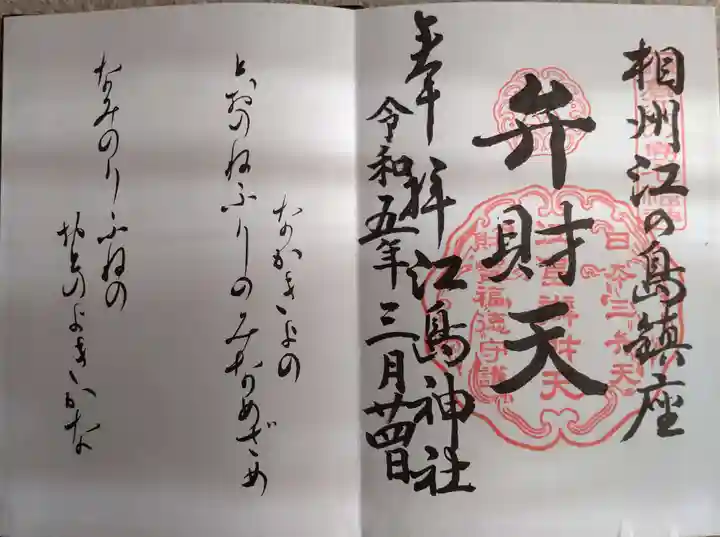 相州江の島鎮座
弁財天
奉拝 江島神社
令和五年三月廿四日
日本三弁天
江島辨財天
財宝福徳守護
なかきよの
とおのねふりのみなめざめ
なみのりふねの
おとのよきかな